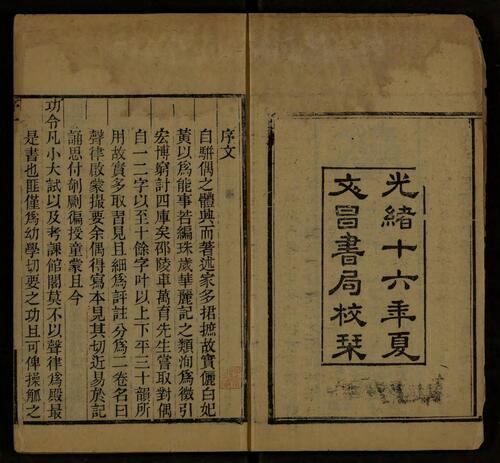 光緒十六年夏
文昌書局校栞
序文
自駢偶之體興而著述家多捃摭故實儷白妃
黃以為能事若編珠歲華麗記之類洵為徵引
宏博窮計四庫矣邵陵車萬育先生嘗取對偶
自一二字以至十餘字叶以上下平三十韻所
用故實多取習見且細為評註分為二卷名曰
聲律啟蒙撮要余偶得寫本見其切近易於記
誦思付剞劂徧授童蒙且今
功令凡小大試以及考課館閣莫不以聲律為殿最
是書也匪僅為幼學切要之功且可俾操觚之